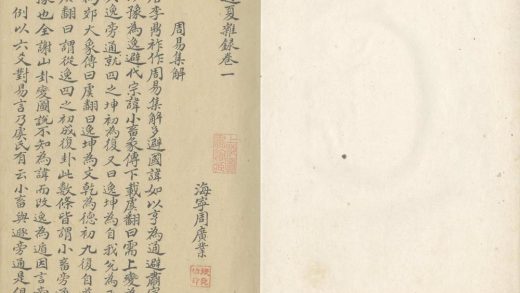 夏雜錄卷一
海寧周廣業
周易集解
唐李鼎祚作周易集解多避國諱如以亨為通避肅宗
豫為逸避代宗諱小畜彖傳下載虞翻曰需上變為
逸旁通就四之坤初為復又曰逸坤為自我兌為
為郊大象傳曰虞翻曰逸坤為文乾為德初九復自
虞翻曰謂從逸四之初成復卦此數條皆謂小畜旁
豫也全謝山卦變圖說不知為諱而改逸為遁因言
例以六爻對易言乃虞氏有云小畜與遯旁通是但